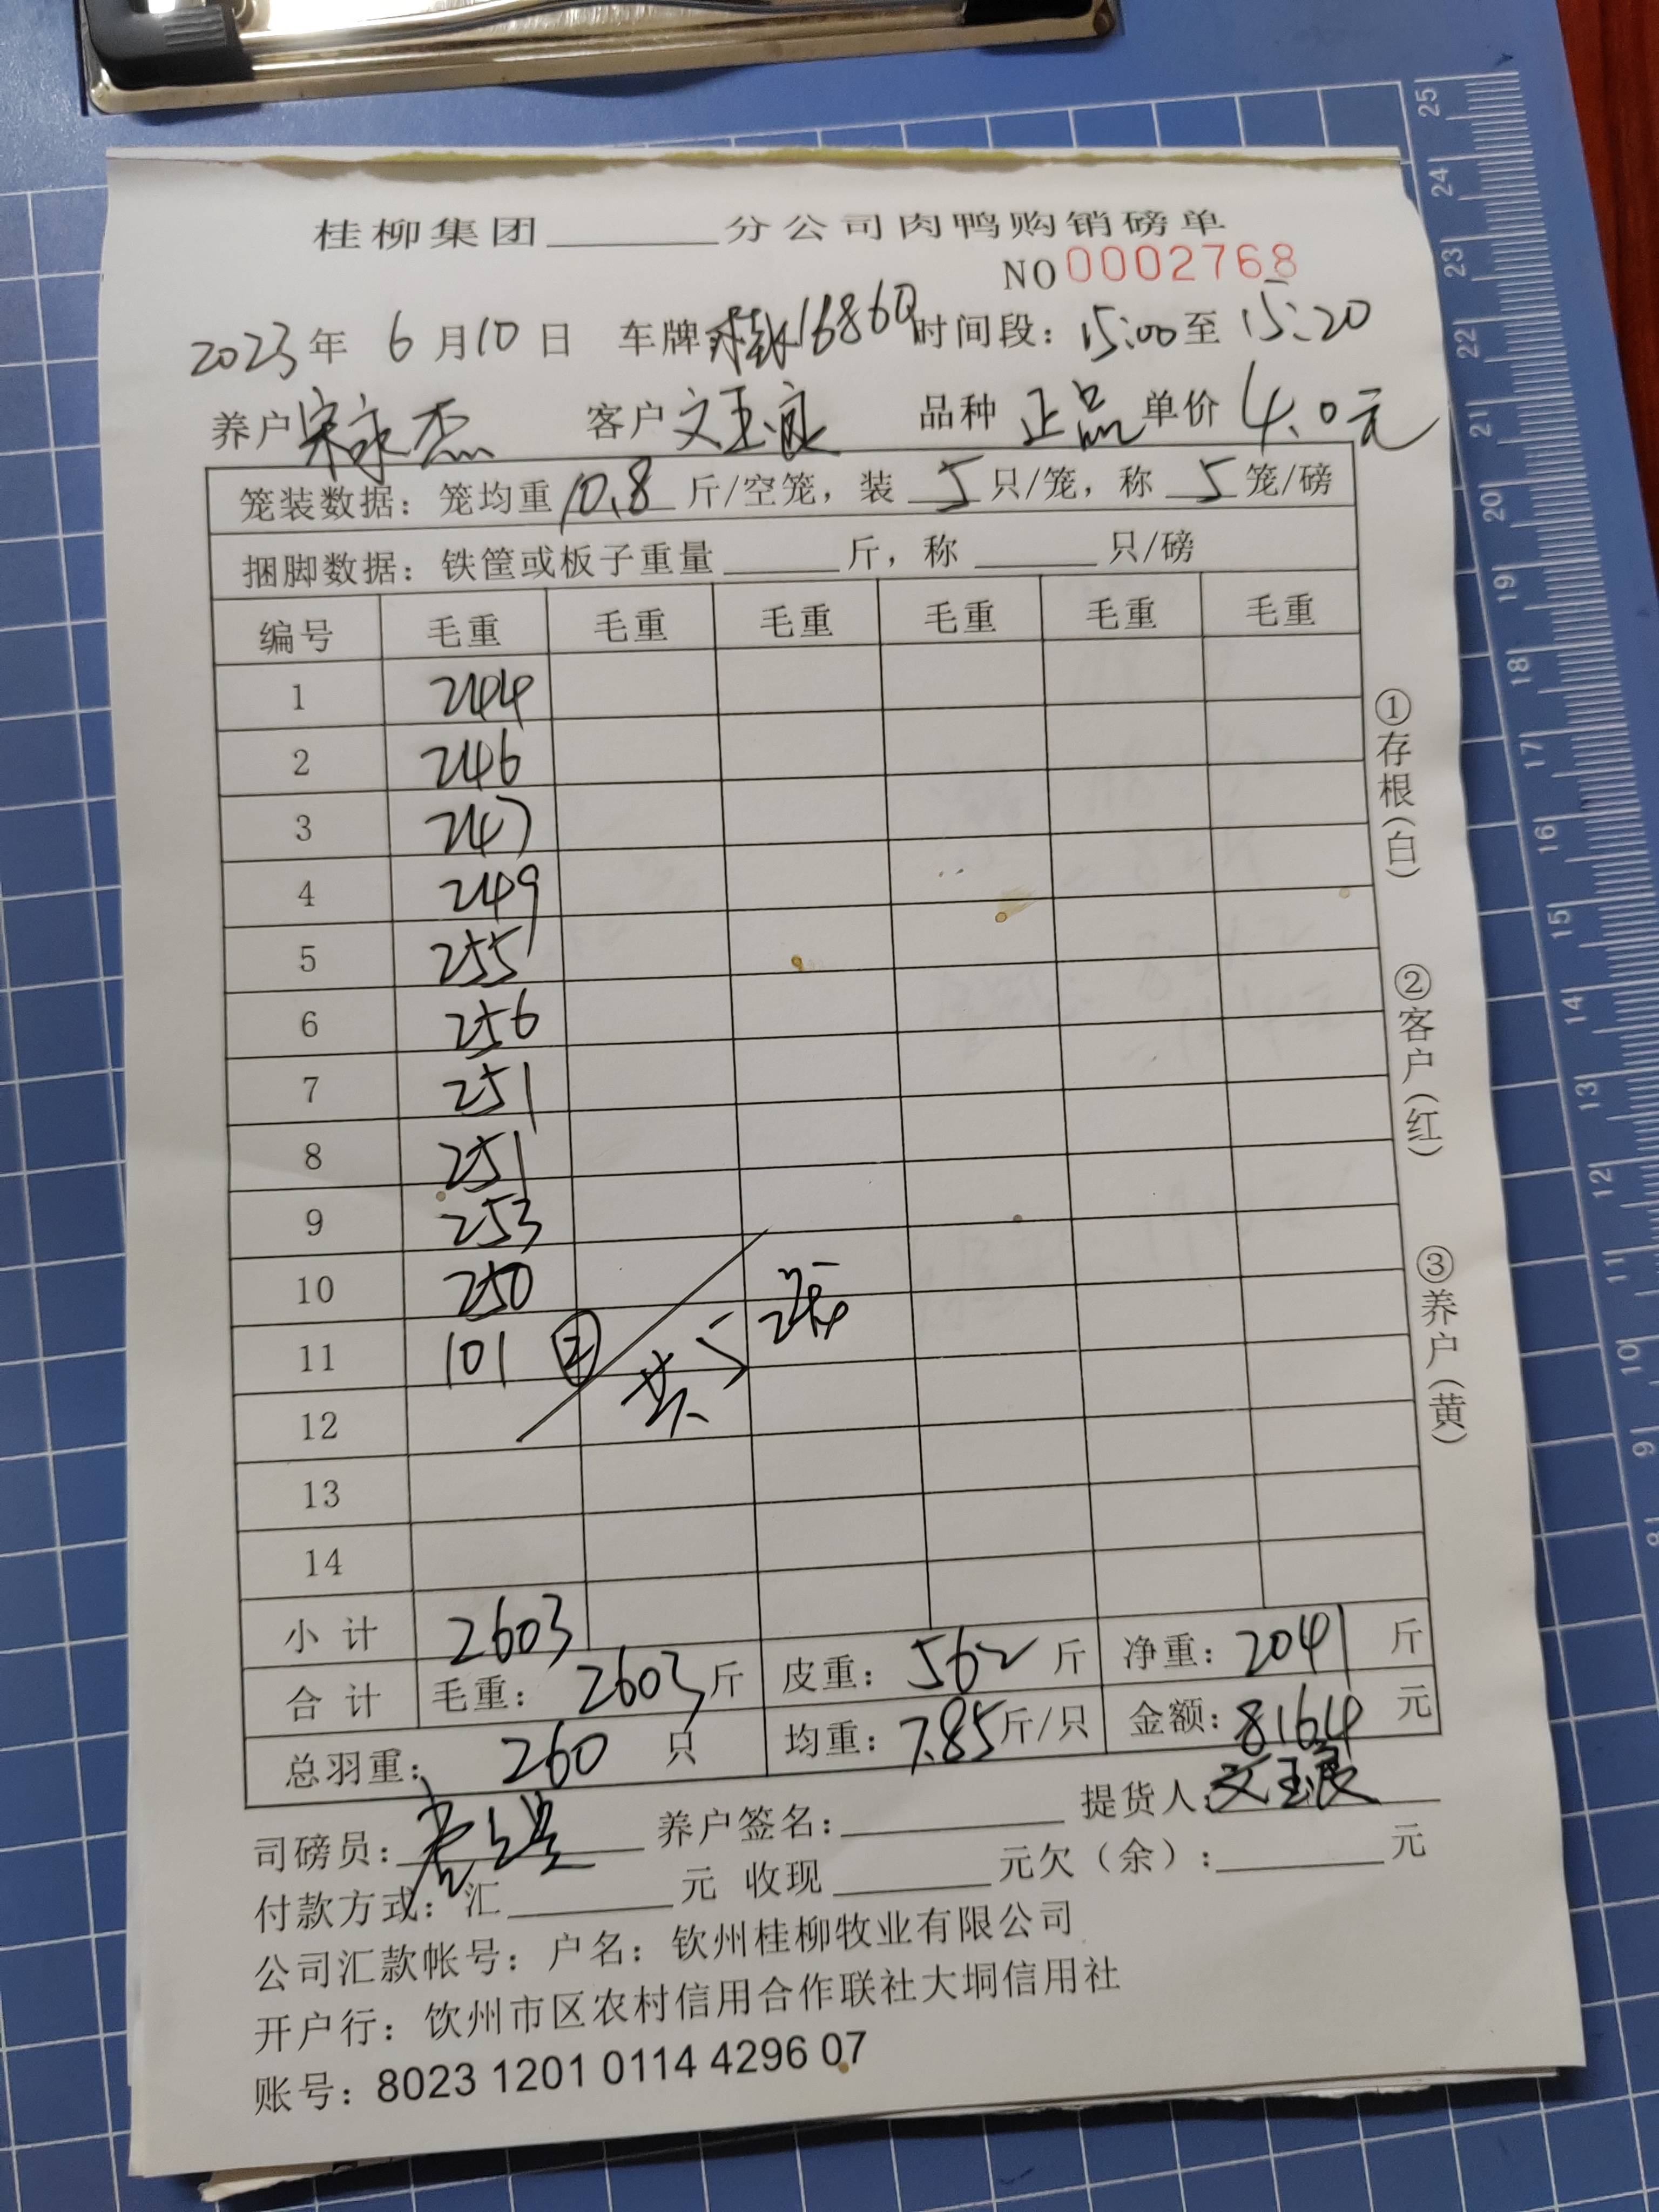 桂柳集团________分公司肉鸭购销磅单
NO 0002768
2023年 6月10日 车牌 16860 时间段：15:00至15:20
养户 宋永杰 客户 文玉良 品种 正品 单价 4.0元
笼装数据：笼均重 10.8 斤/空笼，装 5 只/笼，称 5 笼/磅
捆脚数据：铁筐或板子重量______斤，称______只/磅
编号 毛重 毛重 毛重 毛重 毛重 毛重
1 244
2 246
3 247
4 249
5 255
6 256
7 251
8 251
9 253
10 250
11 101 ②
12 共5
13
14
小计 2603
合计 毛重：2603斤 皮重：562斤 净重：2041斤
总羽重：260只 均重：7.85斤/只 金额：8164元
司磅员： 养户签名：________ 提货人：文玉良
付款方式：汇______元 收现______元欠（余）：______元
公司汇款帐号：户名：钦州桂柳牧业有限公司
开户行：钦州市区农村信用合作联社大垌信用社
账号：8023 1201 0114 4296 07
①存根（白） ②客户（红） ③养户（黄）
25 24 23 22 21 20 19 18 17 16 15 14 13 12 11 10 9 8